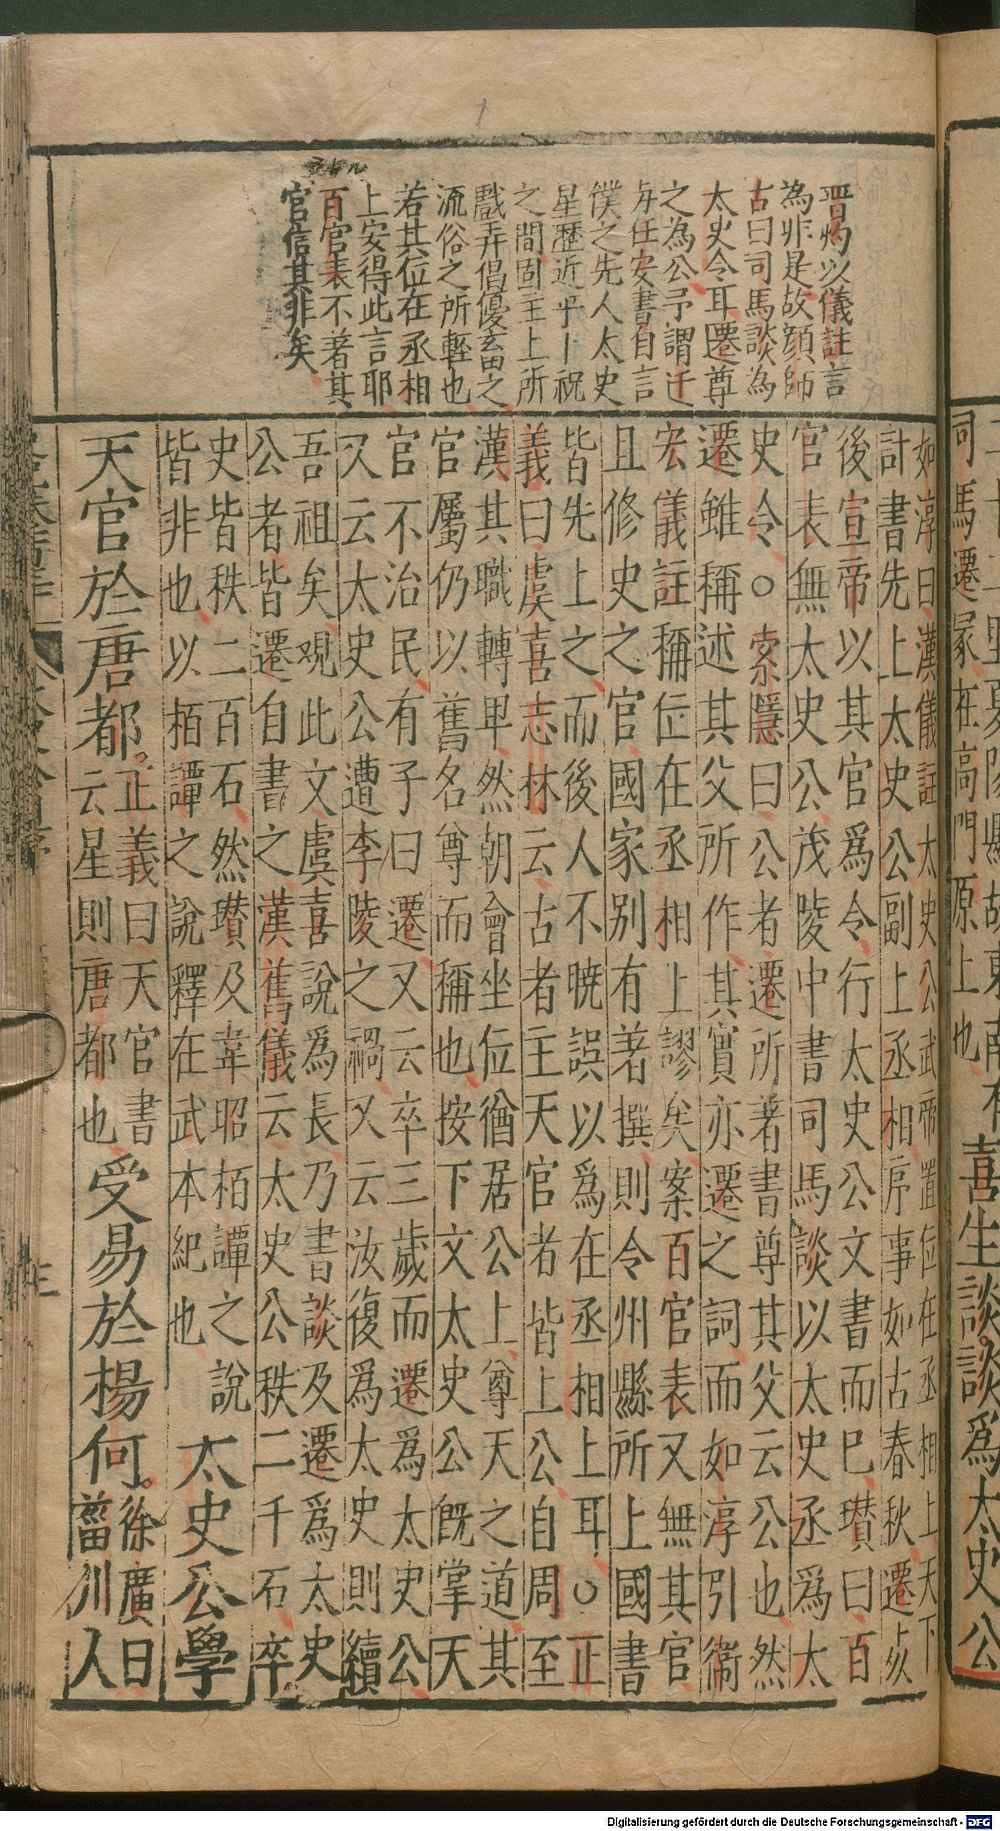 晋灼以儀註言
為非是故顔師
古曰司馬談為
太史令耳遷尊
之為公予謂迁
与任安書自言
僕之先人太史
星歷近乎卜祝
之間固主上所
戲弄倡優畜之
流俗之所輕也
若其位在丞相
上安得此言耶
百官表不著其
官信其非矣
司馬遷冢在高門原上也
喜生談談爲太史公
如淳曰漢儀註太史公武帝置位在丞相上天下
計書先上太史公副上丞相序事如古春秋遷歿
後宣帝以其官爲令行太史公文書而已瓉曰百
官表無太史公茂陵中書司馬談以太史丞爲太
史令○索隱曰公者遷所著書尊其父云公也然
遷雖稱述其父所作其實亦遷之詞而如淳引衛
宏儀註稱位在丞相上謬矣案百官表又無其官
且修史之官國家别有著撰則令州縣所上國書
皆先上之而後人不曉誤以爲在丞相上耳○正
義曰虞喜志林云古者主天官者皆上公自周至
漢其職轉卑然朝會坐位猶居公上尊天之道其
官屬仍以舊名尊而稱也按下文太史公旣掌天
官不治民有子曰遷又云卒三歲而遷爲太史公
又云太史公遭李陵之禍又云汝復爲太史則續
吾祖矣觀此文虞喜說爲長乃書談及遷爲太史
公者皆遷自書之漢舊儀云太史公秩二千石卒
史皆秩二百石然瓉及韋昭栢譚之說
皆非也以栢譚之說釋在武本紀也
太史公學
天官於唐都
正義曰天官書
云星則唐都也
受易於楊何
徐廣曰
菑川人
Digitalisierung gefördert durch die Deutsche Forschungsgemeinschaft - DFG